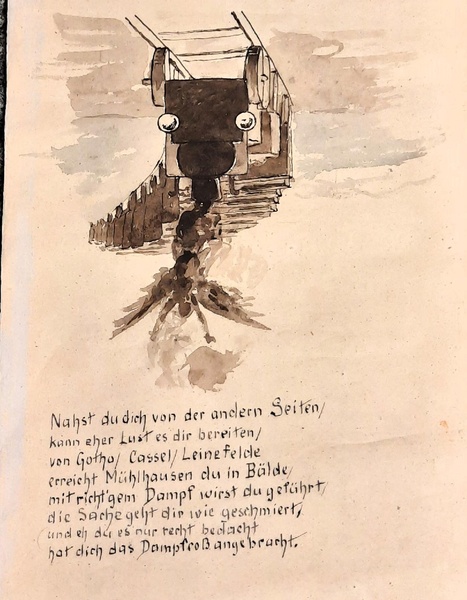 Nahst du dich von der andern Seiten/
kann eher Lust es dir bereiten/
von Gotha/ Cassel/ Leinefelde
erreicht Mühlhausen du in Bälde/
mit richt'gem Dampf wirst du geführt/
die Sache geht dir wie geschmiert,
und eh du es nur recht bedacht
hat dich das Dampfroß angebracht.